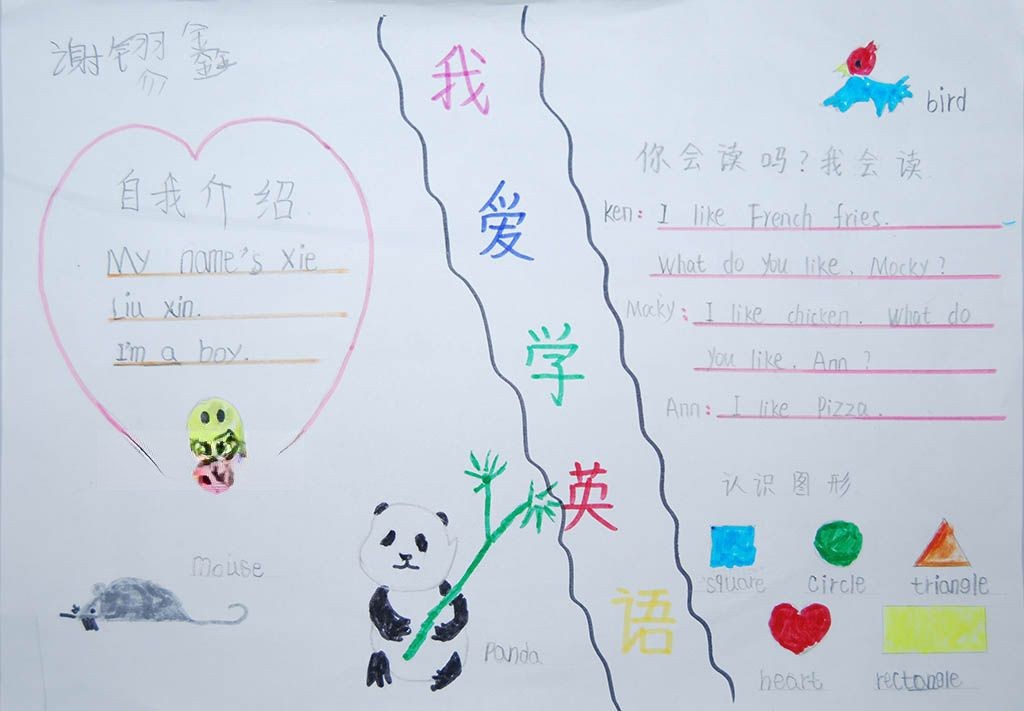 谢 鑫
我爱学英语
自我介绍.
My name's Xie
Liu xin.
I'm a boy.
mouse
Panda
bird
你会读吗?我会读
ken: I like French fries.
What do you like, Mocky?
Mocky: I like chicken. What do
you like, Ann?
Ann: I like Pizza.
认识图形
square circle triangle
heart rectangle